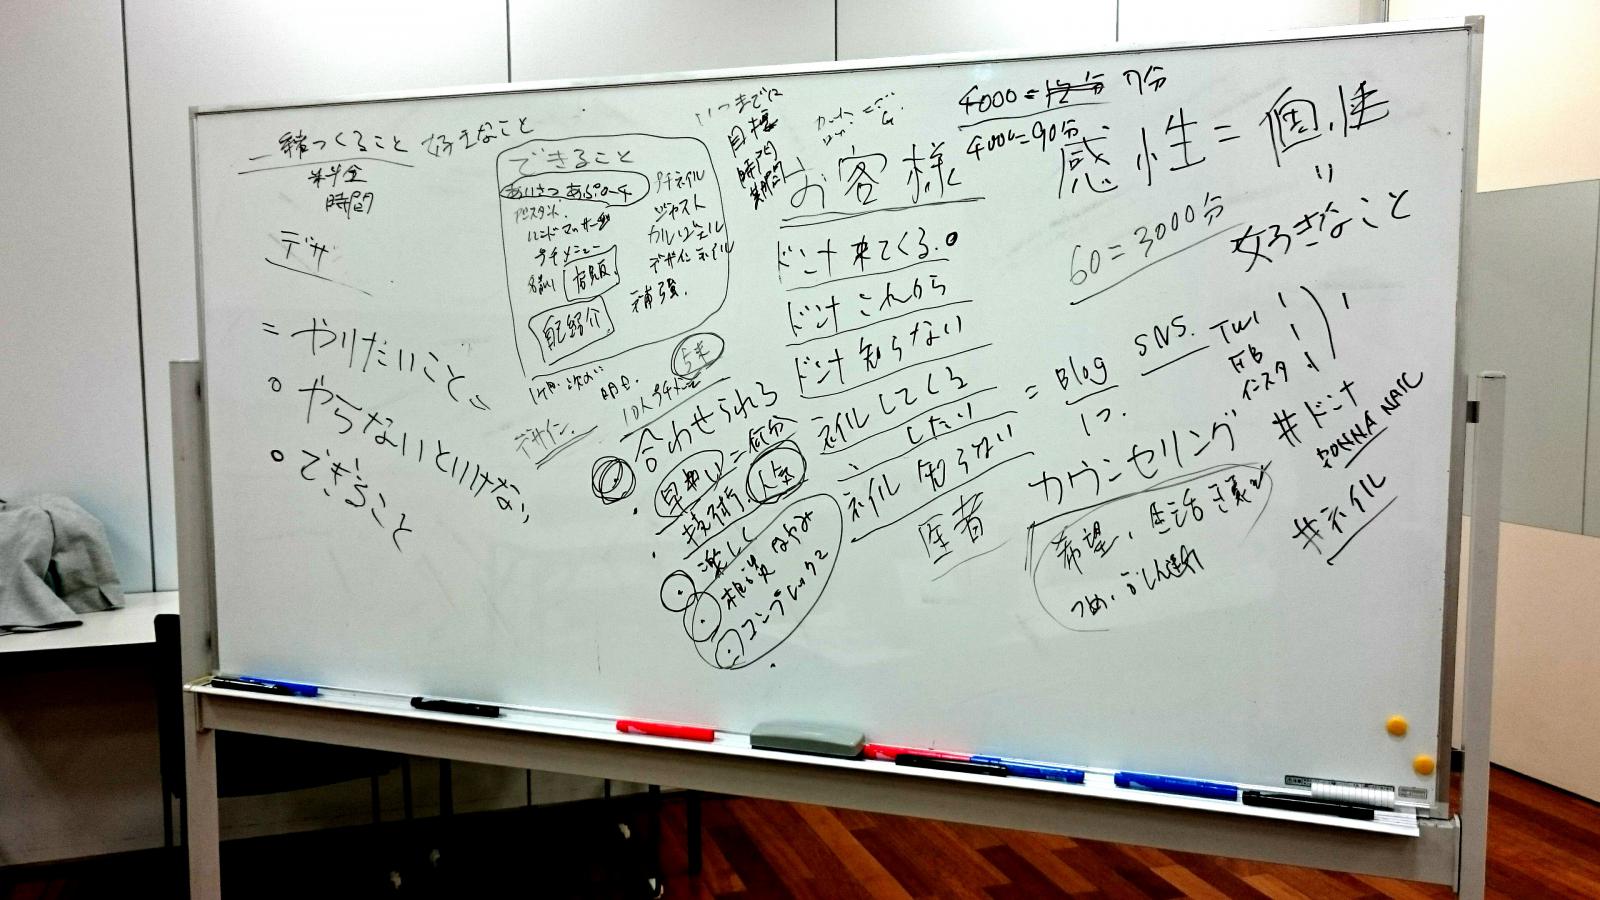 一緒につくること 好きなこと
料金
時間
デザ
= やりたいこと
。やらないといけない
。できること
できること
あいさつ あぷろーち
アシスタント
ハンドマッサージ
プチメニュー
名前
店販
自己紹介
プチネイル
ジャスト
カルジェル
デザインネイル
補強
デザイン
いつまでに
目標
時間
期間
合わせられる
早い = 何分
技術 人気
楽しく
相談 なやみ
コンプレックス
お客様
ドンナ 来てくる。
ドンナ これから
ドンナ 知らない
ネイルしてくる
したい
ネイル 知らない
医者
4000 = 7分
4000=90分
感性 = 個性
〃
好きなこと
60=3000分
= Blog SNS. TWI
FB
インスタ
カウンセリング
希望、生活
つめ、
#ドンナ
DONNA NAIL
#ネイル